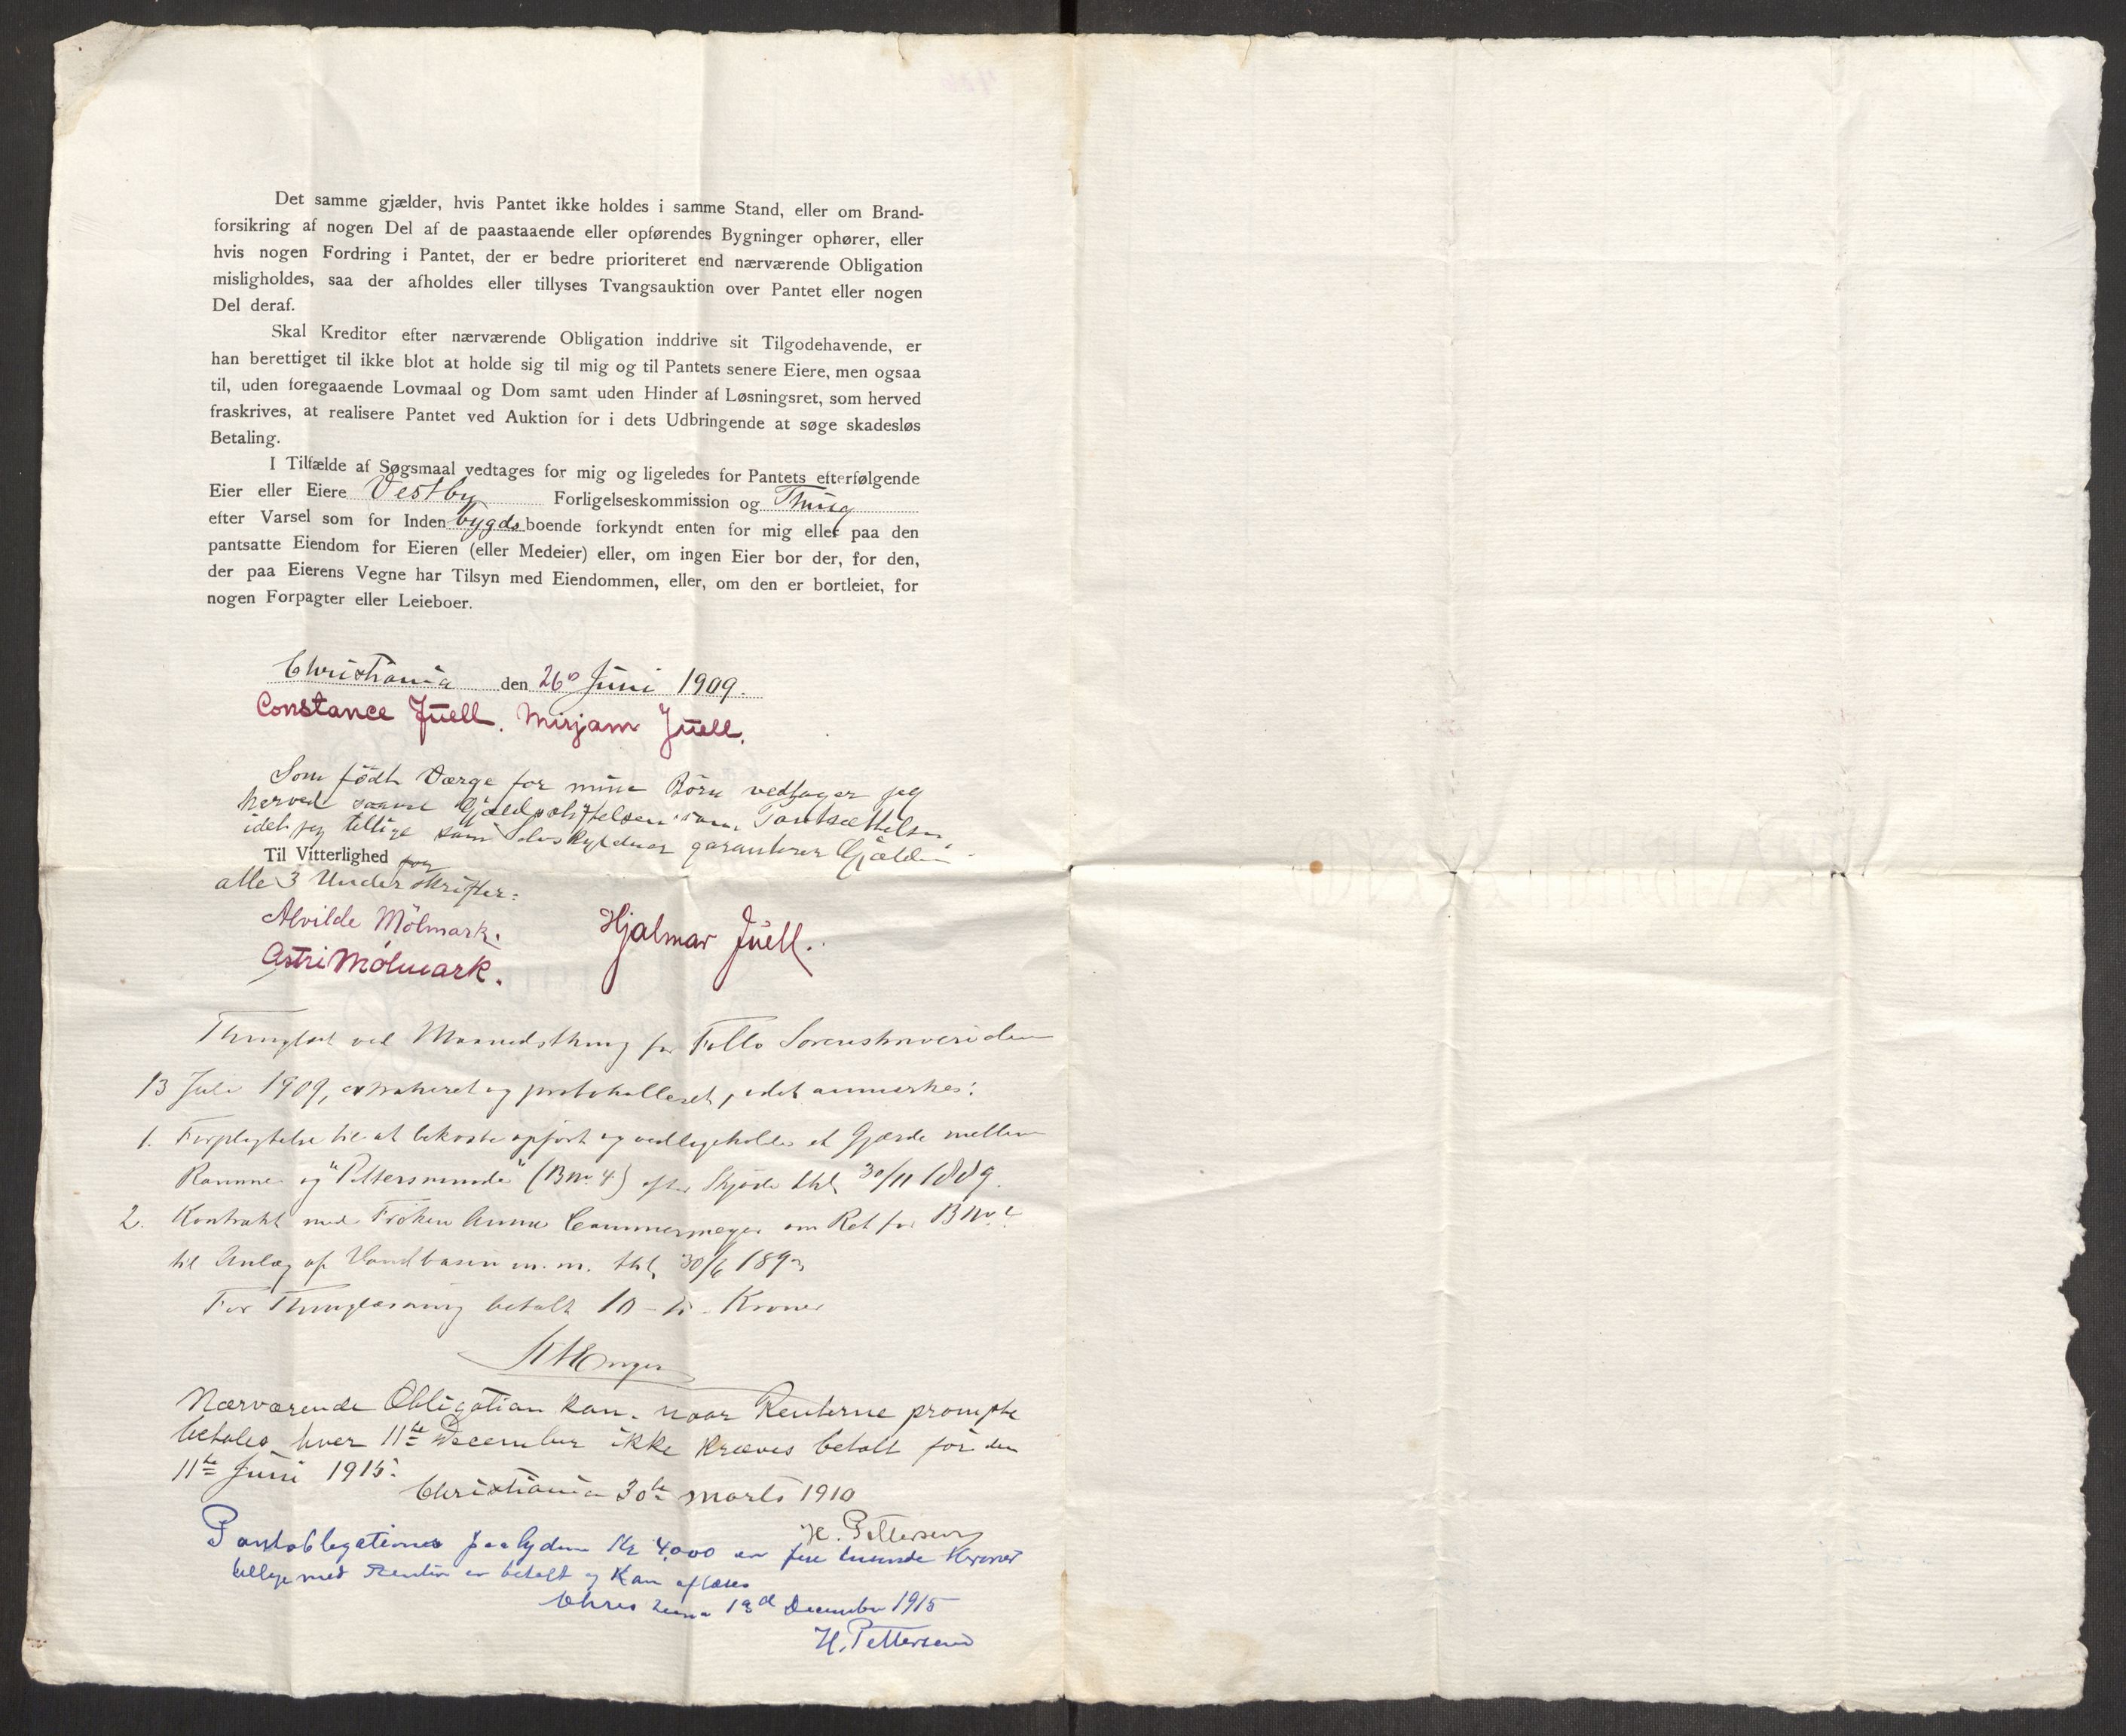 Det samme gjælder, hvis Pantet ikke holdes i samme Stand, eller om Brand-
forsikring af nogen Del af de paastaaende eller opførendes Bygninger ophører, eller
hvis nogen Fordring i Pantet, der er bedre prioriteret end nærværende Obligation
misligholdes, saa der afholdes eller tillyses Tvangsauktion over Pantet eller nogen
Del deraf.
Skal Kreditor efter nærværende Obligation inddrive sit Tilgodehavende, er
han berettiget til ikke blot at holde sig til mig og til Pantets senere Eiere, men ogsaa
til, uden foregaaende Lovmaal og Dom samt uden Hinder af Løsningsret, som herved
fraskrives, at realisere Pantet ved Auktion for i dets Udbringende at søge skadesløs
Betaling.
I Tilfælde af Søgsmaal vedtages for mig og ligeledes for Pantets efterfølgende
Eier eller Eiere Vestby Forligelseskommission og Thing
efter Varsel som for Indenbygdsboende forkyndt enten for mig eller paa den
pantsatte Eiendom for Eieren (eller Medeier) eller, om ingen Eier bor der, for den,
der paa Eierens Vegne har Tilsyn med Eiendommen, eller, om den er bortleiet, for
nogen Forpagter eller Leieboer.
Christiania den 26 Juni 1909.
Constance Juell. Mirjam Juell.
Som født Værge for mine Börn vedtager jeg
herved saavel Gjældsstiftelsen som Pantsættelsen
idet jeg tillige som Selvskyldner garanterer Gjælden
Til Vitterlighed for
alle 3 Underskrifter:
Alvilde Mölmark.
Hjalmar Juell.
Astri Mölmark.
Thinglæst ved Maanedsthing for Follo Sorenskriveri den
13 Juli 1909, extraheret og protokolleret, idet anmærkes:
1. Forpligtelse til at bekoste opført og vedligeholde et Gjærde mellem
Ramme og "Pettersminde" (B No 4) efter Skjøde thl. 30/11 1889.
2. Kontrakt med Frøken Anna Cammermeyer om Ret for B No
til Anlæg af Vandbasin m. m. thl. 30/6
For Thinglæsning betalt 10 - ti - Kroner
Nærværende Obligation kan, naar Renterne prompte
betales hver 11te December ikke kræves betalt før den
11te Juni 1915.
Christiania 30te Marts 1910
H. Pettersen
Pantobligationen paalydende Kr 4,000 er fire tusinde Kroner
tillige med Renter er betalt og Kan aflæses
Christiania 13d December 1915
H. Pettersen